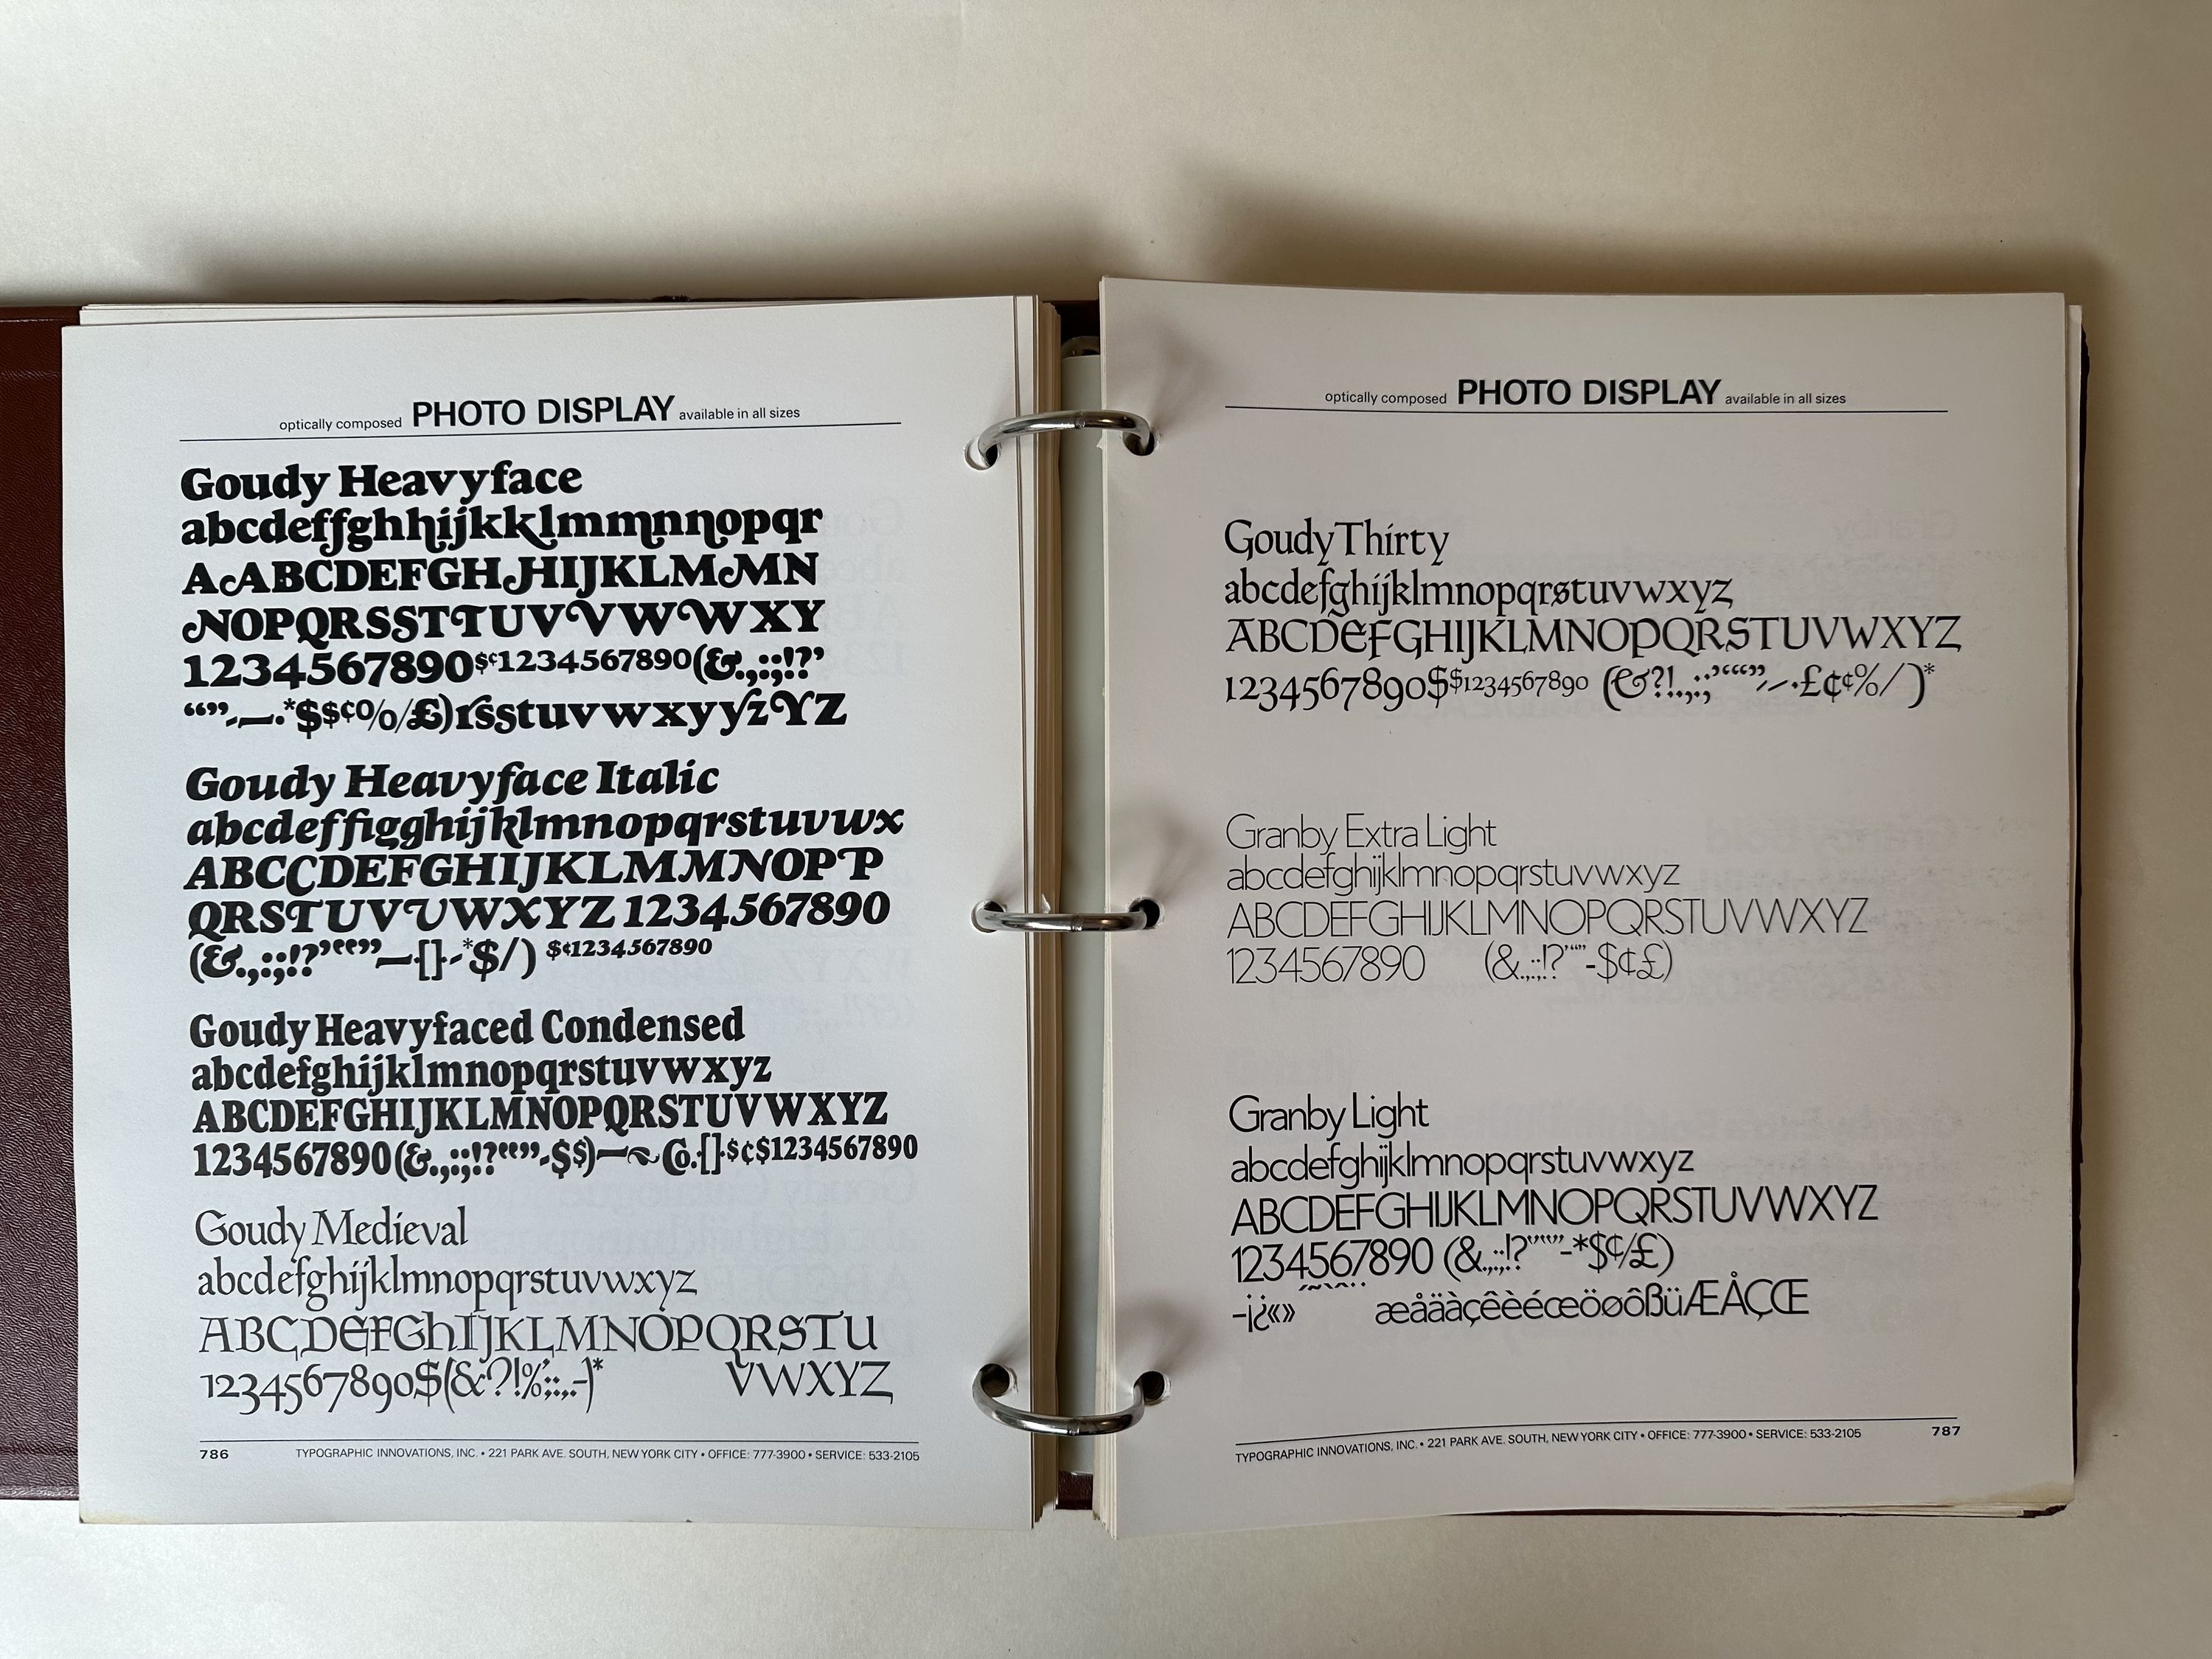 optically composed PHOTO DISPLAY available in all sizes
Goudy Heavyface
abcdeffghhijkklmmnnopqr
AABCDEFGHHIJKLMMN
NOPQRSSTTUVVWWXY
1234567890$¢1234567890(&.,:;!?’
“”-—·*$$¢%/£)rsstuvwxyyzYZ
Goudy Heavyface Italic
abcdeffigghijklmnopqrstuvwx
ABCCDEFGHIJKLMMNOPP
QRSTUVUWXYZ 1234567890
(&.,:;!?’“”—[]·-*$/) $¢1234567890
Goudy Heavyfaced Condensed
abcdefghijklmnopqrstuvwxyz
ABCDEFGHIJKLMNOPQRSTUVWXYZ
1234567890(&.,:;!?“”-$$)—~ @·[]·$¢$1234567890
Goudy Medieval
abcdefghijklmnopqrstuvwxyz
ABCDEFGhIJKLMNOPQRSTU
1234567890$(&?!%’:;,.-)* VWXYZ
786 TYPOGRAPHIC INNOVATIONS, INC. • 221 PARK AVE. SOUTH, NEW YORK CITY • OFFICE: 777-3900 • SERVICE: 533-2105
optically composed PHOTO DISPLAY available in all sizes
Goudy Thirty
abcdefghijklmnopqrstuvwxyz
ABCDEFGHIJKLMNOPQRSTUVWXYZ
1234567890$$1234567890 (&?!.,:;’“”-–·£¢¢%/)*
Granby Extra Light
abcdefghijklmnopqrstuvwxyz
ABCDEFGHIJKLMNOPQRSTUVWXYZ
1234567890 (&.,:;!?’“”-$¢£)
Granby Light
abcdefghijklmnopqrstuvwxyz
ABCDEFGHIJKLMNOPQRSTUVWXYZ
1234567890 (&.,:;!?“”-*$¢/£)
–¡¿«» æåäàçêèéœöøôßüÆÅÇŒ
TYPOGRAPHIC INNOVATIONS, INC. • 221 PARK AVE. SOUTH, NEW YORK CITY • OFFICE: 777-3900 • SERVICE: 533-2105 787